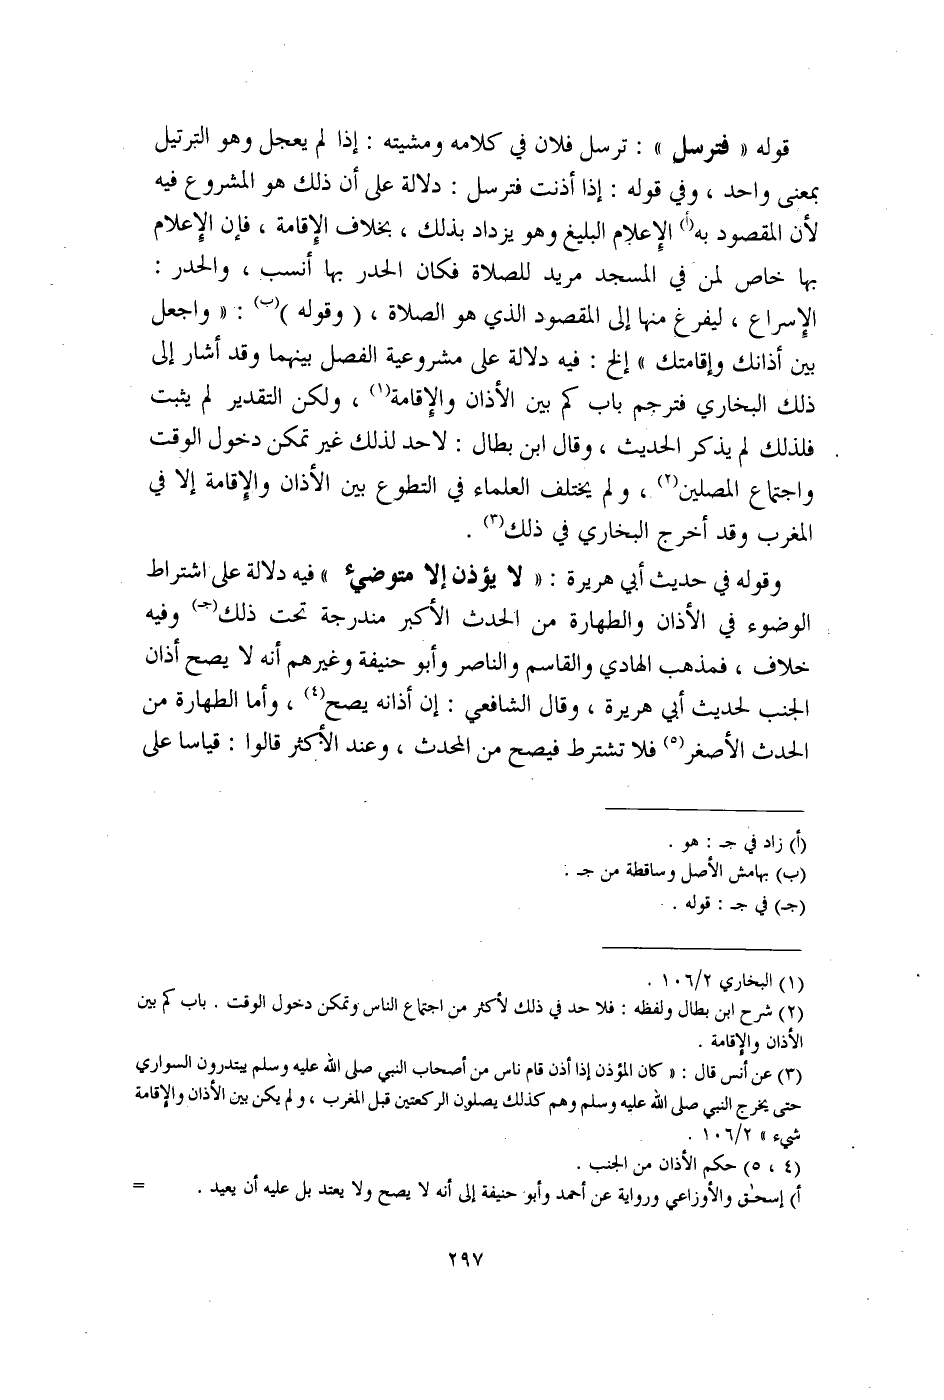 قوله « فترسل » : ترسل فلان في كلامه ومشيته : إذا لم يعجل وهو الترتيل
بمعنى واحد ، وفي قوله : إذا أذنت فترسل : دلالة على أن ذلك هو المشروع فيه
لأن المقصود به(أ) الإعلام البليغ وهو يزداد بذلك ، بخلاف الإقامة ، فإن الإعلام
بها خاص لمن في المسجد مريد للصلاة فكان الحدر بها أنسب ، والحدر :
الإسراع ، ليفرغ منها إلى المقصود الذي هو الصلاة ، ( وقوله )(ب) : « واجعل
بين أذانك وإقامتك » إلخ : فيه دلالة على مشروعية الفصل بينهما وقد أشار إلى
ذلك البخاري فترجم باب كم بين الأذان والإقامة(١) ، ولكن التقدير لم يثبت
فلذلك لم يذكر الحديث ، وقال ابن بطال : لاحد لذلك غير تمكن دخول الوقت
واجتماع المصلين(٢) ، ولم يختلف العلماء في التطوع بين الأذان والإقامة إلا في
المغرب وقد أخرج البخاري في ذلك(٣) .
وقوله في حديث أبي هريرة : « لا يؤذن إلا متوضئ » فيه دلالة على اشتراط
الوضوء في الأذان والطهارة من الحدث الأكبر مندرجة تحت ذلك(جـ) وفيه
خلاف ، فمذهب الهادي والقاسم والناصر وأبو حنيفة وغيرهم أنه لا يصح أذان
الجنب لحديث أبي هريرة ، وقال الشافعي : إن أذانه يصح(٤) ، وأما الطهارة من
الحدث الأصغر(٥) فلا تشترط فيصح من المحدث ، وعند الأكثر قالوا : قياسا على
(أ) زاد في جـ : هو .
(ب) بهامش الأصل وساقطة من جـ .
(جـ) في جـ : قوله .
(١) البخاري ١٠٦/٢ .
(٢) شرح ابن بطال ولفظه : فلا حد في ذلك لأكثر من اجتماع الناس وتمكن دخول الوقت . باب كم بين
الأذان والإقامة .
(٣) عن أنس قال : « كان المؤذن إذا أذن قام ناس من أصحاب النبي صلى الله عليه وسلم يبتدرون السواري
حتى يخرج النبي صلى الله عليه وسلم وهم كذلك يصلون الركعتين قبل المغرب ، ولم يكن بين الأذان والإقامة
شيء » ١٠٦/٢ .
(٤ ، ٥) حكم الأذان من الجنب .
أ) إسحٰق والأوزاعي ورواية عن أحمد وأبو حنيفة إلى أنه لا يصح ولا يعتد بل عليه أن يعيد . =
٢٩٧